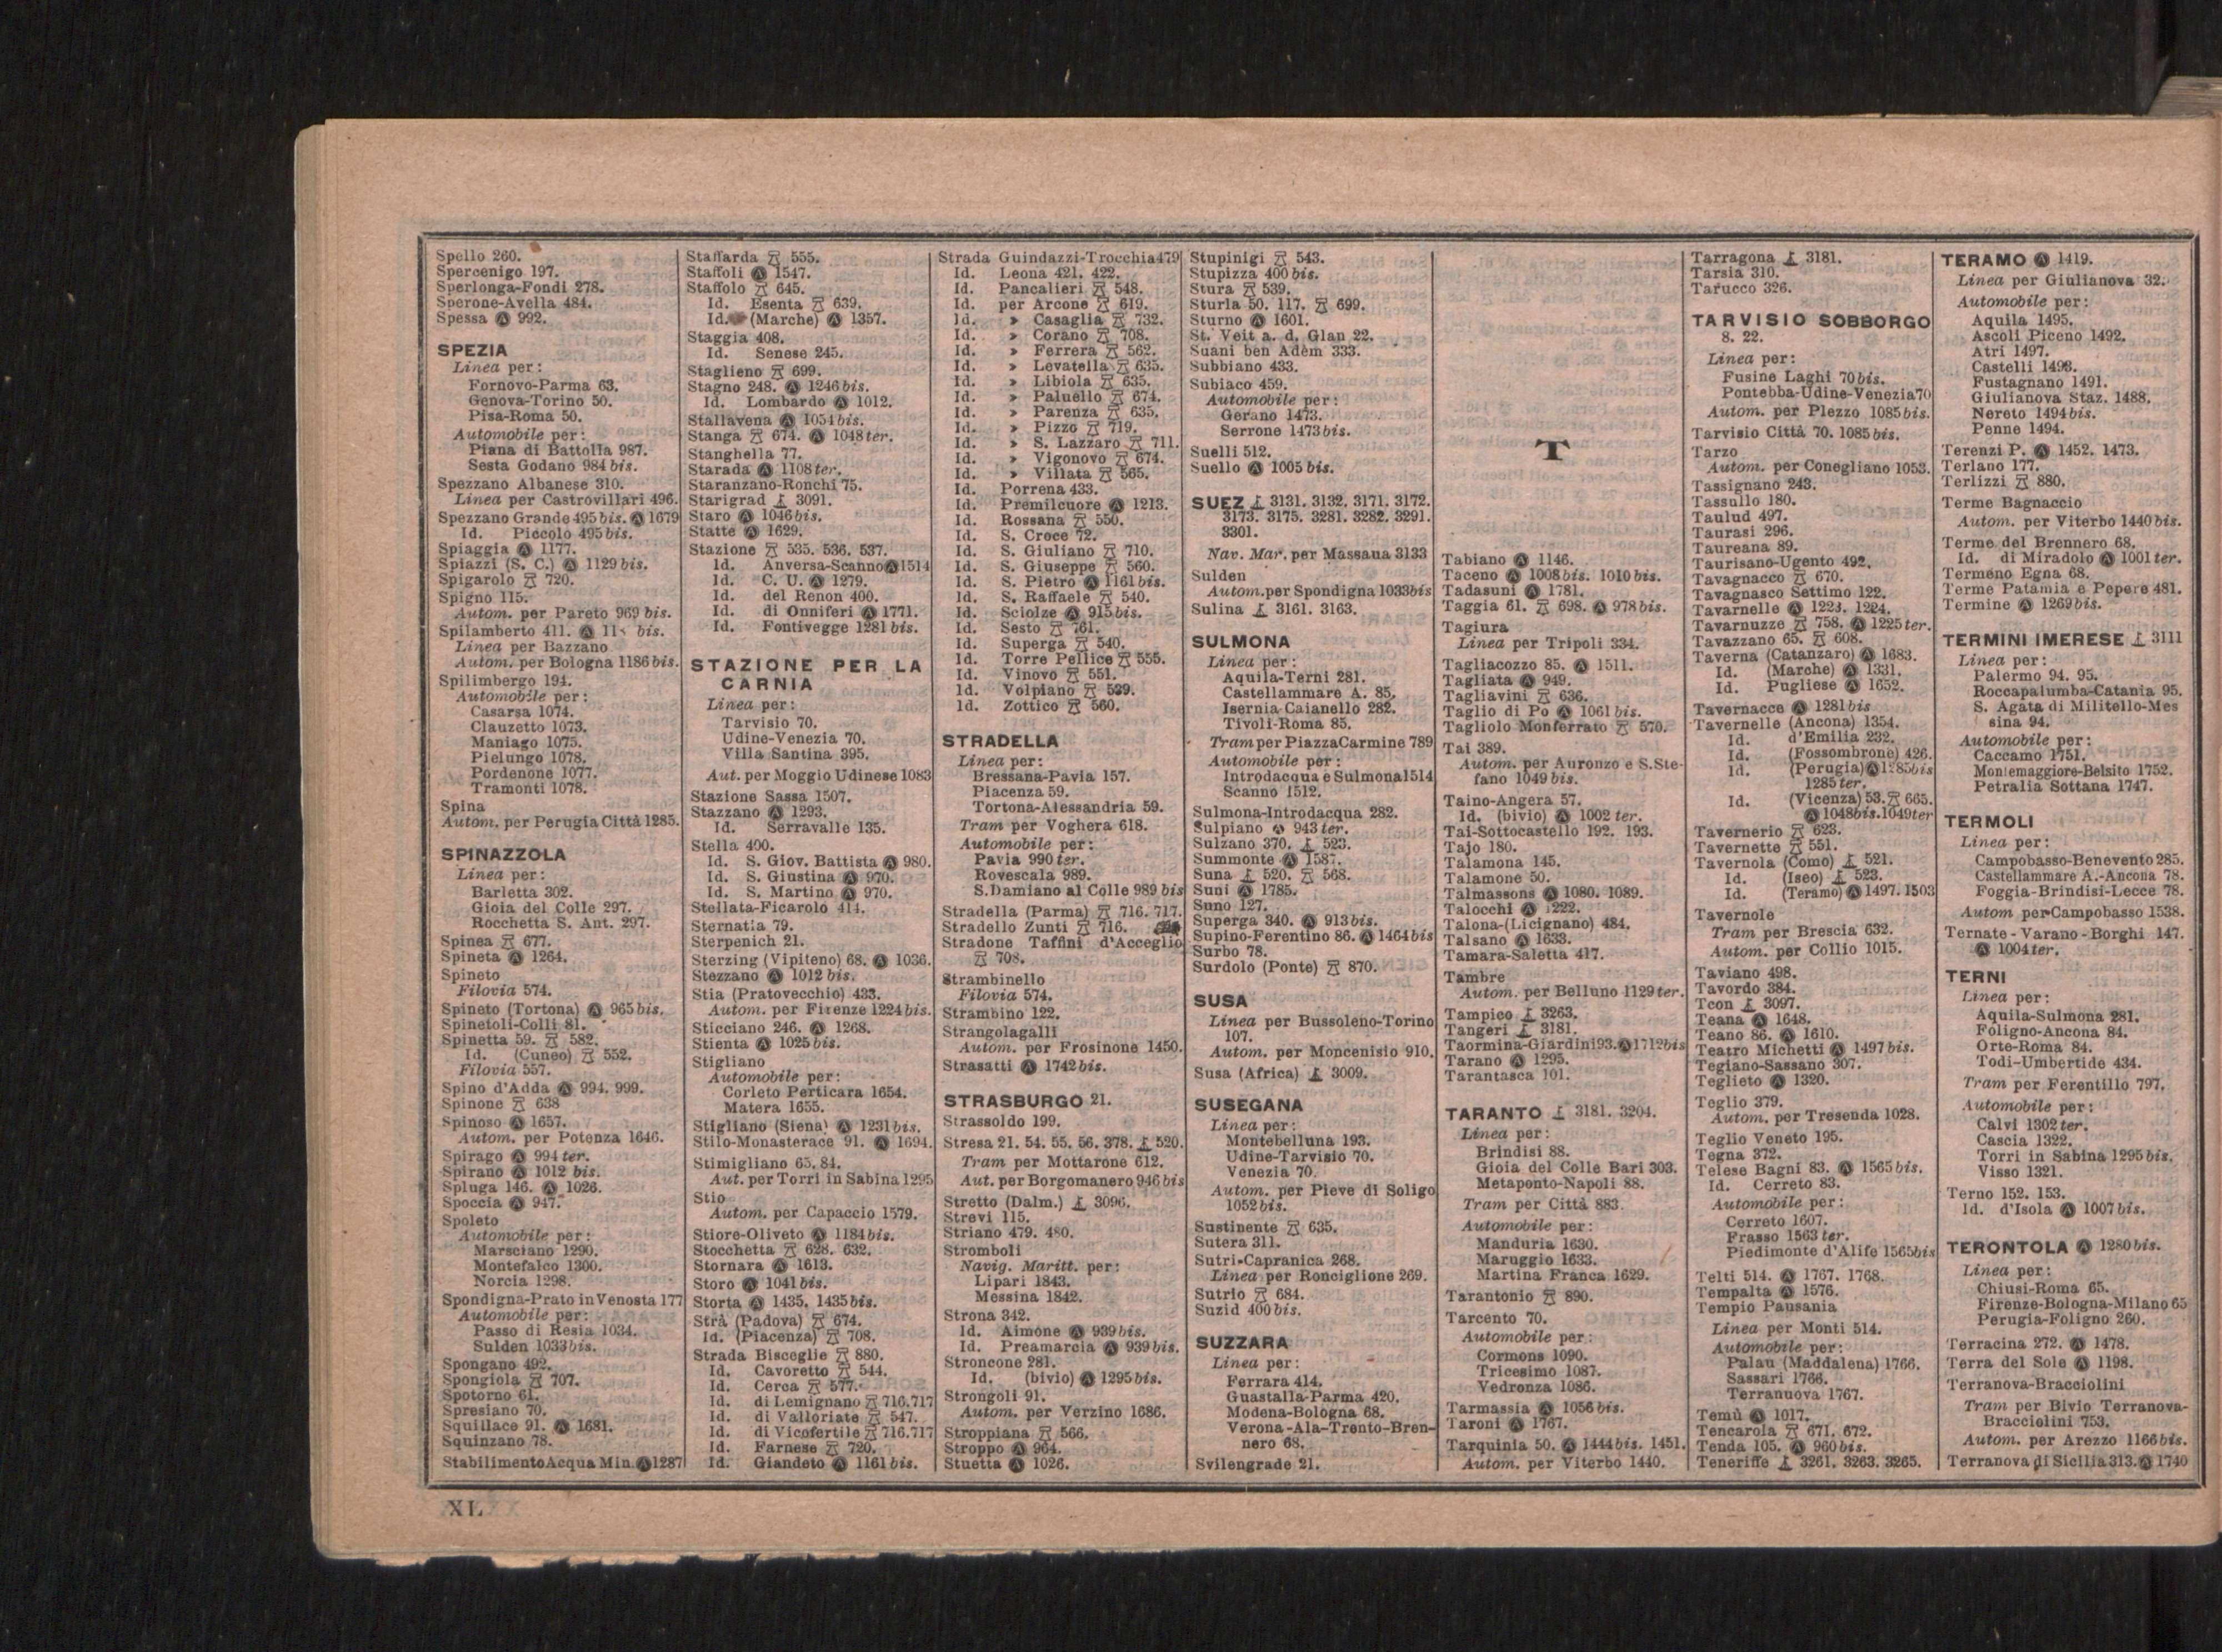 Spello 260.
Spercenigo 197.
Sperlonga-Fondi 278.
Sperone-Avella 484.
Spessa Ⓐ 992.
SPEZIA
Linea per:
Fornovo-Parma 63.
Genova-Torino 50.
Pisa-Roma 50.
Automobile per:
Piana di Battolla 987.
Sesta Godano 984 bis.
Spezzano Albanese 310.
Linea per Castrovillari 496.
Spezzano Grande 495 bis. Ⓐ 1679
Id. Piccolo 495 bis.
Spiaggia Ⓐ 1177.
Spiazzi (S. C.) Ⓐ 1129 bis.
Spigarolo 720.
Spigno 115.
Autom. per Pareto 969 bis.
Spilamberto 411. Ⓐ bis.
Linea per Bazzano
Autom. per Bologna 1186 bis.
Spilimbergo 194.
Automobile per:
Casarsa 1074.
Clauzetto 1073.
Maniago 1075.
Pielungo 1078.
Pordenone 1077.
Tramonti 1078.
Spina
Autom. per Perugia Città 1285.
SPINAZZOLA
Linea per:
Barletta 302.
Gioia del Colle 297.
Rocchetta S. Ant. 297.
Spinea 677.
Spineta Ⓐ 1264.
Spineto
Filovia 574.
Spineto (Tortona) Ⓐ 965 bis.
Spinetoli-Colli 81.
Spinetta 59. 582.
Id. (Cuneo) 552.
Filovia 557.
Spino d'Adda Ⓐ 994. 999.
Spinone 638
Spinoso Ⓐ 1657.
Autom. per Potenza 1646.
Spirago Ⓐ 994 ter.
Spirano Ⓐ 1012 bis.
Spluga 146. Ⓐ 1026.
Spoccia Ⓐ 947.
Spoleto
Automobile per:
Marsciano 1290.
Montefalco 1300.
Norcia 1298.
Spondigna-Prato in Venosta 177
Automobile per:
Passo di Resia 1034.
Sulden 1033 bis.
Spongano 492.
Spongiola 707.
Spotorno 61.
Spresiano 70.
Squillace 91. Ⓐ 1681.
Squinzano 78.
Stabilimento Acqua Min. Ⓐ 1287
Staffarda 555.
Staffoli Ⓐ 1547.
Staffolo 645.
Id. Esenta 639.
Id. (Marche) Ⓐ 1357.
Staggia 408.
Id. Senese 245.
Staglieno 699.
Stagno 248. Ⓐ 1246 bis.
Id. Lombardo Ⓐ 1012.
Stallavena Ⓐ 1054 bis.
Stanga 674. Ⓐ 1048 ter.
Stanghella 77.
Starada Ⓐ 1108 ter.
Staranzano-Ronchi 75.
Starigrad 3091.
Staro Ⓐ 1046 bis.
Statte Ⓐ 1629.
Stazione 535. 536. 537.
Id. Anversa-Scanno Ⓐ 1514
Id. C. U. Ⓐ 1279.
Id. del Renon 400.
Id. di Onniferi Ⓐ 1771.
Id. Fontivegge 1281 bis.
STAZIONE PER LA
CARNIA
Linea per:
Tarvisio 70.
Udine-Venezia 70.
Villa Santina 395.
Aut. per Moggio Udinese 1083
Stazione Sassa 1507.
Stazzano Ⓐ 1293.
Id. Serravalle 135.
Stella 400.
Id. S. Giov. Battista Ⓐ 980.
Id. S. Giustina Ⓐ 970.
Id. S. Martino Ⓐ 970.
Stellata-Ficarolo 414.
Sternatia 79.
Sterpenich 21.
Sterzing (Vipiteno) 68. Ⓐ 1036.
Stezzano Ⓐ 1012 bis.
Stia (Pratovecchio) 433.
Autom. per Firenze 1224 bis.
Sticciano 246. Ⓐ 1268.
Stienta Ⓐ 1025 bis.
Stigliano
Automobile per:
Corleto Perticara 1654.
Matera 1655.
Stigliano (Siena) Ⓐ 1231 bis.
Stilo-Monasterace 91. Ⓐ 1694.
Stimigliano 65. 84.
Aut. per Torri in Sabina 1295
Stio
Autom. per Capaccio 1579.
Stiore-Oliveto Ⓐ 1184 bis.
Stocchetta 628. 632.
Stornara Ⓐ 1613.
Storo Ⓐ 1041 bis.
Storta Ⓐ 1435. 1435 bis.
Strà (Padova) 674.
Id. (Piacenza) 708.
Strada Bisceglie 880.
Id. Cavoretto 544.
Id. Cerca 577.
Id. di Lemignano 716.717
Id. di Valloriate 547.
Id. di Vicofertile 716.717
Id. Farnese 720.
Id. Giandeto Ⓐ 1161 bis.
Strada Guindazzi-Trocchia 479
Id. Leona 421. 422.
Id. Pancalieri 548.
Id. per Arcone 619.
Id. » Casaglia 732.
Id. » Corano 708.
Id. » Ferrera 562.
Id. » Levatella 635.
Id. » Libiola 635.
Id. » Paluello 674.
Id. » Parenza 635.
Id. » Pizzo 719.
Id. » S. Lazzaro 711.
Id. » Vigonovo 674.
Id. » Villata 565.
Id. Porrena 433.
Id. Premilcuore Ⓐ 1213.
Id. Rossana 550.
Id. S. Croce 72.
Id. S. Giuliano 710.
Id. S. Giuseppe 560.
Id. S. Pietro Ⓐ 1161 bis.
Id. S. Raffaele 540.
Id. Sciolze Ⓐ 915 bis.
Id. Sesto 761.
Id. Superga 540.
Id. Torre Pellice 555.
Id. Vinovo 551.
Id. Volpiano 539.
Id. Zottico 560.
STRADELLA
Linea per:
Bressana-Pavia 157.
Piacenza 59.
Tortona-Alessandria 59.
Tram per Voghera 618.
Automobile per:
Pavia 990 ter.
Rovescala 989.
S. Damiano al Colle 989 bis
Stradella (Parma) 716. 717.
Stradello Zunti 716.
Stradone Taffini d'Acceglio
708.
Strambinello
Filovia 574.
Strambino 122.
Strangolagalli
Autom. per Frosinone 1450.
Strasatti Ⓐ 1742 bis.
STRASBURGO 21.
Strassoldo 199.
Stresa 21. 54. 55. 56. 378. 520.
Tram per Mottarone 612.
Aut. per Borgomanero 946 bis
Stretto (Dalm.) 3096.
Strevi 115.
Striano 479. 480.
Stromboli
Navig. Maritt. per:
Lipari 1843.
Messina 1842.
Strona 342.
Id. Aimone Ⓐ 939 bis.
Id. Preamarcia Ⓐ 939 bis.
Stroncone 281.
Id. (bivio) Ⓐ 1295 bis.
Strongoli 91.
Autom. per Verzino 1686.
Stroppiana 566.
Stroppo Ⓐ 964.
Stuetta Ⓐ 1026.
Stupinigi 543.
Stupizza 400 bis.
Stura 539.
Sturla 50. 117. 699.
Sturno Ⓐ 1601.
St. Veit a. d. Glan 22.
Suani ben Adèm 333.
Subbiano 433.
Subiaco 459.
Automobile per:
Gerano 1473.
Serrone 1473 bis.
Suelli 512.
Suello Ⓐ 1005 bis.
SUEZ 3131. 3132. 3171. 3172.
3173. 3175. 3281. 3282. 3291.
3301.
Nav. Mar. per Massaua 3133
Sulden
Autom. per Spondigna 1033 bis
Sulina 3161. 3163.
SULMONA
Linea per:
Aquila-Terni 281.
Castellammare A. 85.
Isernia-Caianello 282.
Tivoli-Roma 85.
Tram per Piazza Carmine 789
Automobile per:
Introdacqua e Sulmona 1514
Scanno 1512.
Sulmona-Introdacqua 282.
Sulpiano Ⓐ 943 ter.
Sulzano 370. 523.
Summonte Ⓐ 1587.
Suna 520. 568.
Suni Ⓐ 1785.
Suno 127.
Superga 340. Ⓐ 913 bis.
Supino-Ferentino 86. Ⓐ 1464 bis
Surbo 78.
Surdolo (Ponte) 870.
SUSA
Linea per Bussoleno-Torino
107.
Autom. per Moncenisio 910.
Susa (Africa) 3009.
SUSEGANA
Linea per:
Montebelluna 193.
Udine-Tarvisio 70.
Venezia 70.
Autom. per Pieve di Soligo
1052 bis.
Sustinente 635.
Sutera 311.
Sutri-Capranica 268.
Linea per Ronciglione 269.
Sutrio 684.
Suzid 400 bis.
SUZZARA
Linea per:
Ferrara 414.
Guastalla-Parma 420.
Modena-Bologna 68.
Verona-Ala-Trento-Bren-
nero 68.
Svilengrade 21.
T
Tabiano Ⓐ 1146.
Taceno Ⓐ 1008 bis. 1010 bis.
Tadasuni Ⓐ 1781.
Taggia 61. 698. Ⓐ 978 bis.
Tagiura
Linea per Tripoli 334.
Tagliacozzo 85. Ⓐ 1511.
Tagliata Ⓐ 949.
Tagliavini 636.
Taglio di Po Ⓐ 1061 bis.
Tagliolo Monferrato 570.
Tai 389.
Autom. per Auronzo e S. Ste-
fano 1049 bis.
Taino-Angera 57.
Id. (bivio) Ⓐ 1002 ter.
Tai-Sottocastello 192. 193.
Tajo 180.
Talamona 145.
Talamone 50.
Talmassons Ⓐ 1080. 1089.
Talocchi Ⓐ 1222.
Talona-(Licignano) 484.
Talsano Ⓐ 1633.
Tamara-Saletta 417.
Tambre
Autom. per Belluno 1129 ter.
Tampico 3263.
Tangeri 3181.
Taormina-Giardini 93. Ⓐ 1712 bis
Tarano Ⓐ 1295.
Tarantasca 101.
TARANTO 3181. 3204.
Linea per:
Brindisi 88.
Gioia del Colle Bari 303.
Metaponto-Napoli 88.
Tram per Città 883.
Automobile per:
Manduria 1630.
Maruggio 1633.
Martina Franca 1629.
Tarantonio 890.
Tarcento 70.
Automobile per:
Cormons 1090.
Tricesimo 1087.
Vedronza 1086.
Tarmassia Ⓐ 1056 bis.
Taroni Ⓐ 1767.
Tarquinia 50. Ⓐ 1444 bis. 1451.
Autom. per Viterbo 1440.
Tarragona 3181.
Tarsia 310.
Tarucco 326.
TARVISIO SOBBORGO
8. 22.
Linea per:
Fusine Laghi 70 bis.
Pontebba-Udine-Venezia 70
Autom. per Plezzo 1085 bis.
Tarvisio Città 70. 1085 bis.
Tarzo
Autom. per Conegliano 1053.
Tassignano 243.
Tassullo 180.
Taulud 497.
Taurasi 296.
Taureana 89.
Taurisano-Ugento 492.
Tavagnacco 670.
Tavagnasco Settimo 122.
Tavarnelle Ⓐ 1223. 1224.
Tavarnuzze 758. Ⓐ 1225 ter.
Tavazzano 65. 608.
Taverna (Catanzaro) Ⓐ 1683.
Id. (Marche) Ⓐ 1331.
Id. Pugliese Ⓐ 1652.
Tavernacce Ⓐ 1281 bis
Tavernelle (Ancona) 1354.
Id. d'Emilia 232.
Id. (Fossombrone) 426.
Id. (Perugia) Ⓐ 1285 bis
1285 ter.
Id. (Vicenza) 53. 665.
Ⓐ 1048 bis. 1049 ter
Tavernerio 623.
Tavernette 551.
Tavernola (Como) 521.
Id. (Iseo) 523.
Id. (Teramo) Ⓐ 1497. 1503
Tavernole
Tram per Brescia 632.
Autom. per Collio 1015.
Taviano 498.
Tavordo 384.
Tcon 3097.
Teana Ⓐ 1648.
Teano 86. Ⓐ 1610.
Teatro Michetti Ⓐ 1497 bis.
Tegiano-Sassano 307.
Teglieto Ⓐ 1320.
Teglio 379.
Autom. per Tresenda 1028.
Teglio Veneto 195.
Tegna 372.
Telese Bagni 83. Ⓐ 1565 bis.
Id. Cerreto 83.
Automobile per:
Cerreto 1607.
Frasso 1563 ter.
Piedimonte d'Alife 1565 bis
Telti 514. Ⓐ 1767. 1768.
Tempalta Ⓐ 1576.
Tempio Pausania
Linea per Monti 514.
Automobile per:
Palau (Maddalena) 1766.
Sassari 1766.
Terranuova 1767.
Temù Ⓐ 1017.
Tencarola 671. 672.
Tenda 105. Ⓐ 960 bis.
Teneriffe 3261. 3263. 3265.
TERAMO Ⓐ 1419.
Linea per Giulianova 32.
Automobile per:
Aquila 1495.
Ascoli Piceno 1492.
Atri 1497.
Castelli 1498.
Fustagnano 1491.
Giulianova Staz. 1488.
Nereto 1494 bis.
Penne 1494.
Terenzi P. Ⓐ 1452. 1473.
Terlano 177.
Terlizzi 880.
Terme Bagnaccio
Autom. per Viterbo 1440 bis.
Terme del Brennero 68.
Id. di Miradolo Ⓐ 1001 ter.
Termeno Egna 68.
Terme Patamia e Pepere 481.
Termine Ⓐ 1269 bis.
TERMINI IMERESE 3111
Linea per:
Palermo 94. 95.
Roccapalumba-Catania 95.
S. Agata di Militello-Mes
sina 94.
Automobile per:
Caccamo 1751.
Montemaggiore-Belsito 1752.
Petralia Sottana 1747.
TERMOLI
Linea per:
Campobasso-Benevento 285.
Castellammare A.-Ancona 78.
Foggia-Brindisi-Lecce 78.
Autom per Campobasso 1538.
Ternate-Varano-Borghi 147.
Ⓐ 1004 ter.
TERNI
Linea per:
Aquila-Sulmona 281.
Foligno-Ancona 84.
Orte-Roma 84.
Todi-Umbertide 434.
Tram per Ferentillo 797.
Automobile per:
Calvi 1302 ter.
Cascia 1322.
Torri in Sabina 1295 bis.
Visso 1321.
Terno 152. 153.
Id. d'Isola Ⓐ 1007 bis.
TERONTOLA Ⓐ 1280 bis.
Linea per:
Chiusi-Roma 65.
Firenze-Bologna-Milano 65
Perugia-Foligno 260.
Terracina 272. Ⓐ 1478.
Terra del Sole Ⓐ 1198.
Terranova-Bracciolini
Tram per Bivio Terranova-
Bracciolini 753.
Autom. per Arezzo 1166 bis.
Terranova di Sicilia 313. Ⓐ 1740
XL